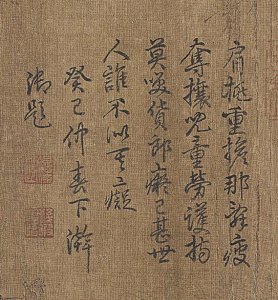 肩挑重擔那辭疲
奪攘兒童勞護持
莫笑貨郎癡已甚世
人誰不似其癡
癸巳仲春下澣
御題